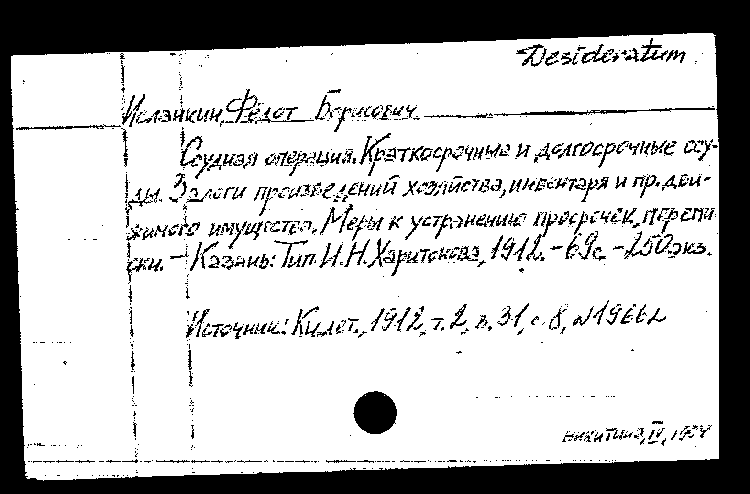 Desideratum
Исланкин, Федот Борисович
Ссудная операция. Краткосрочные и долгосрочные ссу-
ды. Залоги произведений хозяйства, инвентаря и пр. дви-
жимого имущества. Меры к устранению просрочек, перепи
ски. - Казань: Тип. И.Н. Харитонова, 1912. - 69с. - 250 экз.
Источник: Кн. лет., 1912, т. 2, в. 31, с. 8, №
Никитина, IV,